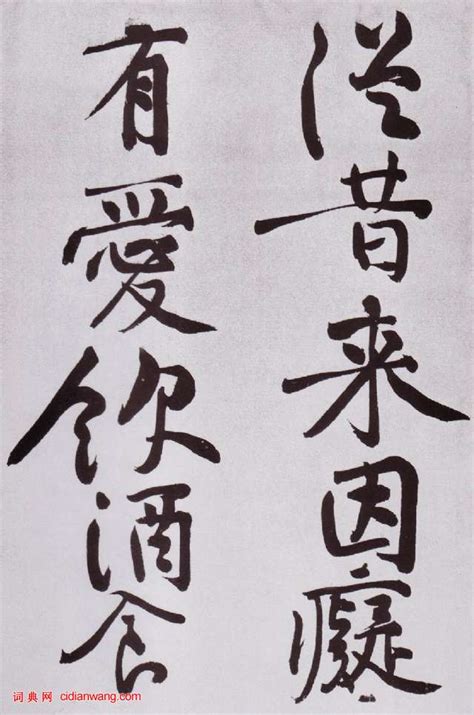 從昔来因癡
有愛飲酒食
词典网 cidianwang.com